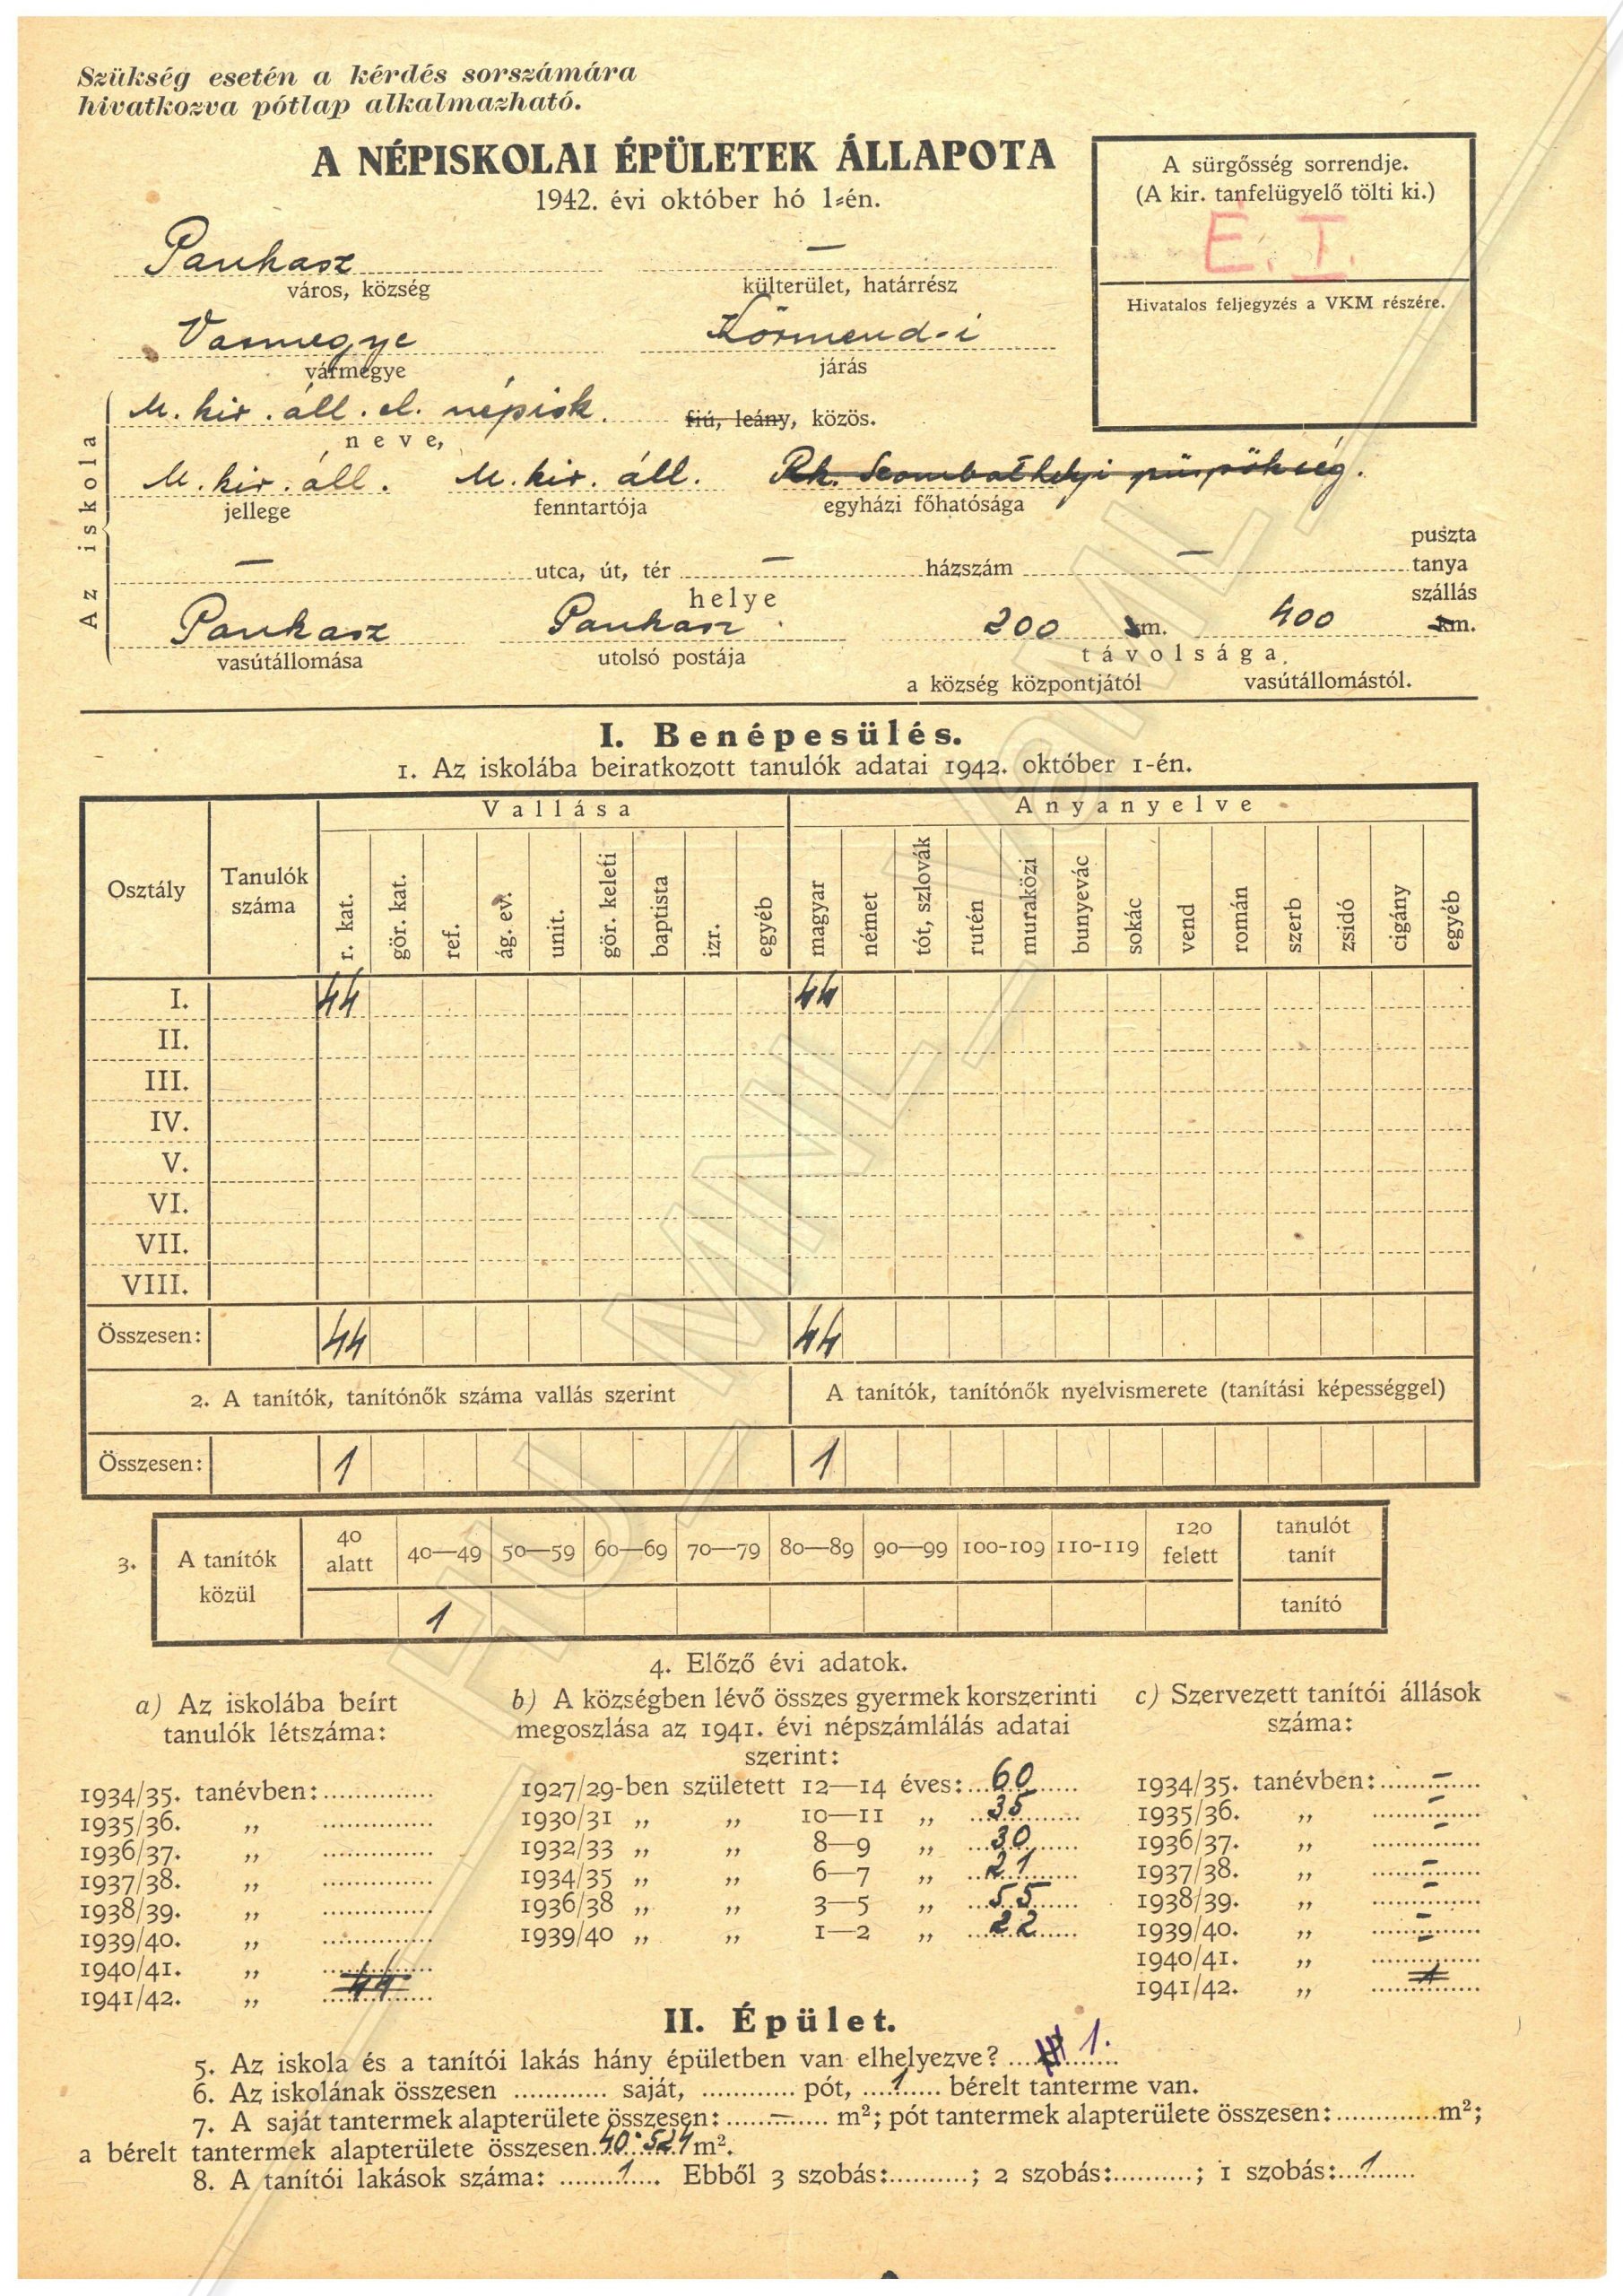 Szükség esetén a kérdés sorszámára
hivatkozva pótlap alkalmazható.
A NÉPISKOLAI ÉPÜLETEK ÁLLAPOTA
1942. évi október hó 1-én.
A sürgősség sorrendje.
(A kir. tanfelügyelő tölti ki.)
É. I.
Hivatalos feljegyzés a VKM részére.
Pankasz —
város, község külterület, határrész
Vasmegye Körmend-i
vármegye járás
Az iskola
M. kir. áll. el. népisk. fiú, leány, közös.
neve,
M. kir. áll. M. kir. áll. Rk. Szombathelyi püspökség.
jellege fenntartója egyházi főhatósága
— utca, út, tér — házszám — puszta
tanya
szállás
helye
Pankasz Pankasz 200 km. 400 km.
vasútállomása utolsó postája távolsága
a község központjától vasútállomástól.
I. Benépesülés.
1. Az iskolába beiratkozott tanulók adatai 1942. október 1-én.
Osztály Tanulók száma Vallása Anyanyelve
r. kat. gör. kat. ref. ág. ev. unit. gör. keleti baptista izr. egyéb magyar német tót, szlovák rutén muraközi bunyevác sokác vend román szerb zsidó cigány egyéb
I. 44 44
II.
III.
IV.
V.
VI.
VII.
VIII.
Összesen: 44 44
2. A tanítók, tanítónők száma vallás szerint A tanítók, tanítónők nyelvismerete (tanítási képességgel)
Összesen: 1 1
3. A tanítók közül 40 alatt 40—49 50—59 60—69 70—79 80—89 90—99 100-109 110-119 120 felett tanulót tanít
1 tanító
4. Előző évi adatok.
a) Az iskolába beírt
tanulók létszáma:
1934/35. tanévben:
1935/36. „
1936/37. „
1937/38. „
1938/39. „
1939/40. „
1940/41. „
1941/42. „ 44
b) A községben lévő összes gyermek korszerinti
megoszlása az 1941. évi népszámlálás adatai
szerint:
1927/29-ben született 12—14 éves: 60
1930/31 „ „ 10—11 „ 35
1932/33 „ „ 8—9 „ 30
1934/35 „ „ 6—7 „ 21
1936/38 „ „ 3—5 „ 55
1939/40 „ „ 1—2 „ 22
c) Szervezett tanítói állások
száma:
1934/35. tanévben: —
1935/36. „ —
1936/37. „ —
1937/38. „ —
1938/39. „ —
1939/40. „ —
1940/41. „ —
1941/42. „ 1
II. Épület.
5. Az iskola és a tanítói lakás hány épületben van elhelyezve? 1.
6. Az iskolának összesen saját, pót, 1 bérelt tanterme van.
7. A saját tantermek alapterülete összesen: — m²; pót tantermek alapterülete összesen: m²;
a bérelt tantermek alapterülete összesen 40·524 m².
8. A tanítói lakások száma: 1. Ebből 3 szobás: ; 2 szobás: ; 1 szobás: 1
HU_MNL_VSML